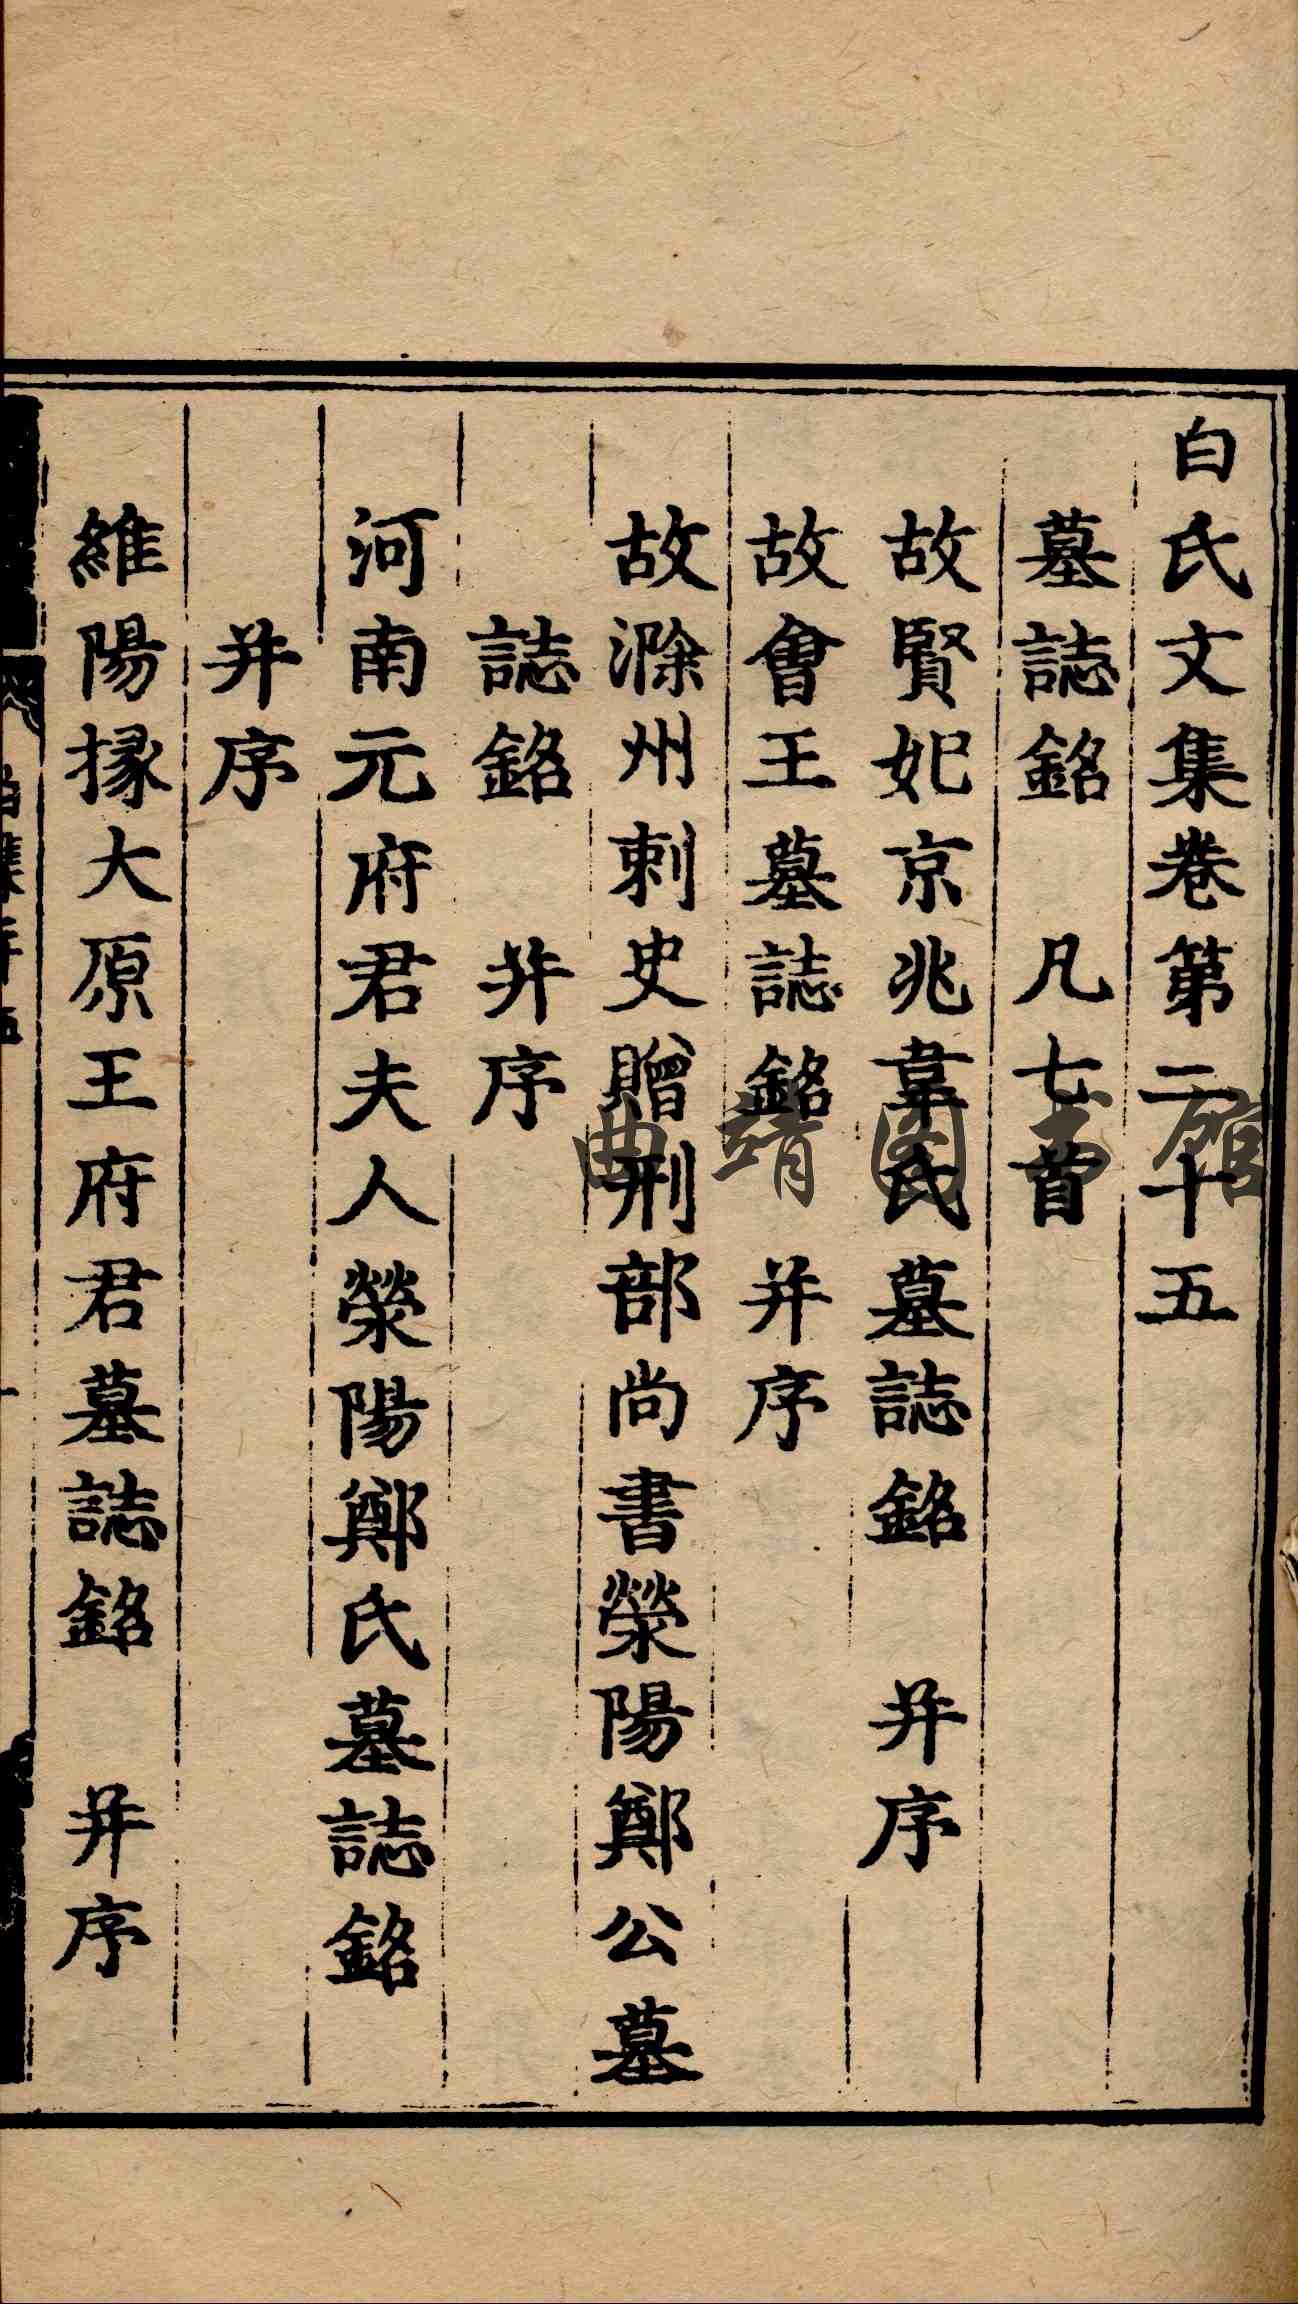 白氏文集卷第二十五
墓誌銘　凡七首
故賢妃京兆韋氏墓誌銘　并序
故會王墓誌銘　并序
故滁州刺史贈刑部尚書滎陽鄭公墓
誌銘　并序
河南元府君夫人滎陽鄭氏墓誌銘
并序
維陽掾大原王府君墓誌銘　并序
曲靖图书馆